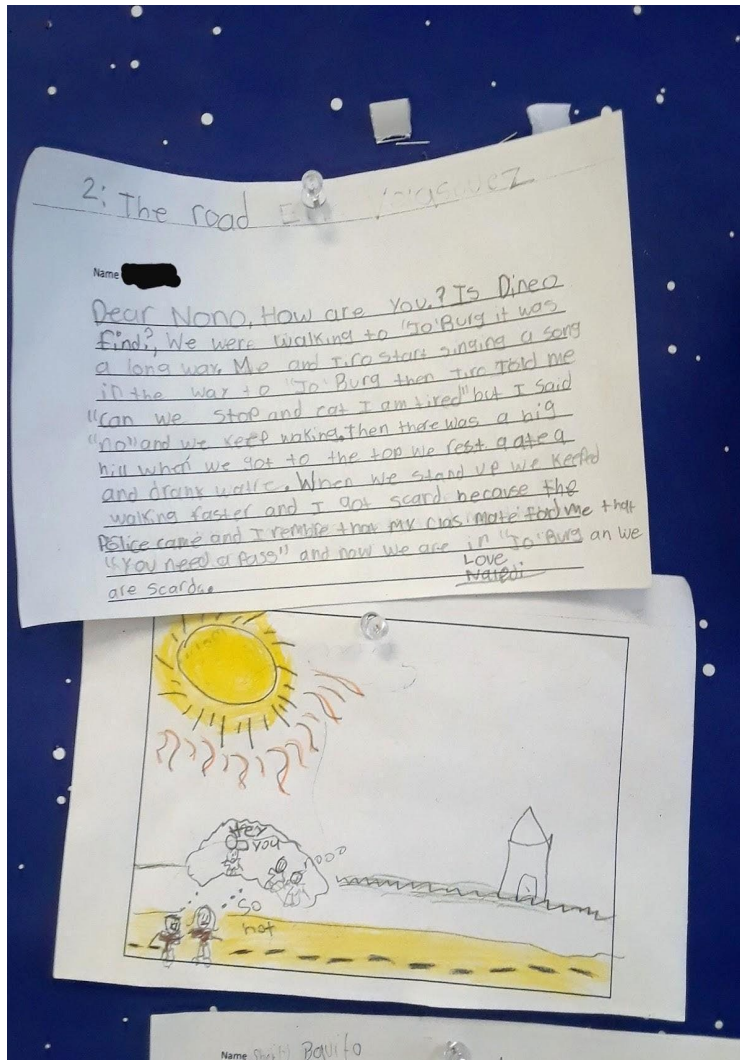 2: The road
Name
Dear Nono, How are you.? Is Dineo
find?, We were walking to "Jo'Burg it was
a long way. Me and Tiro start singing a song
in the way to "Jo'Burg then Tiro Told me
"can we stop and eat I am tired" but I said
"no" and we keep waking. Then there was a big
hill when we got to the top we rest a
and drank . When we stand up we keeped
walking faster and I got scard because the
Police came and I remble that my clas mate told me that
"You need a Pass" and now we are in "Jo'Burg an we
are scard.
Love
Naledi
Hey
you
So
hot
Name Bquito